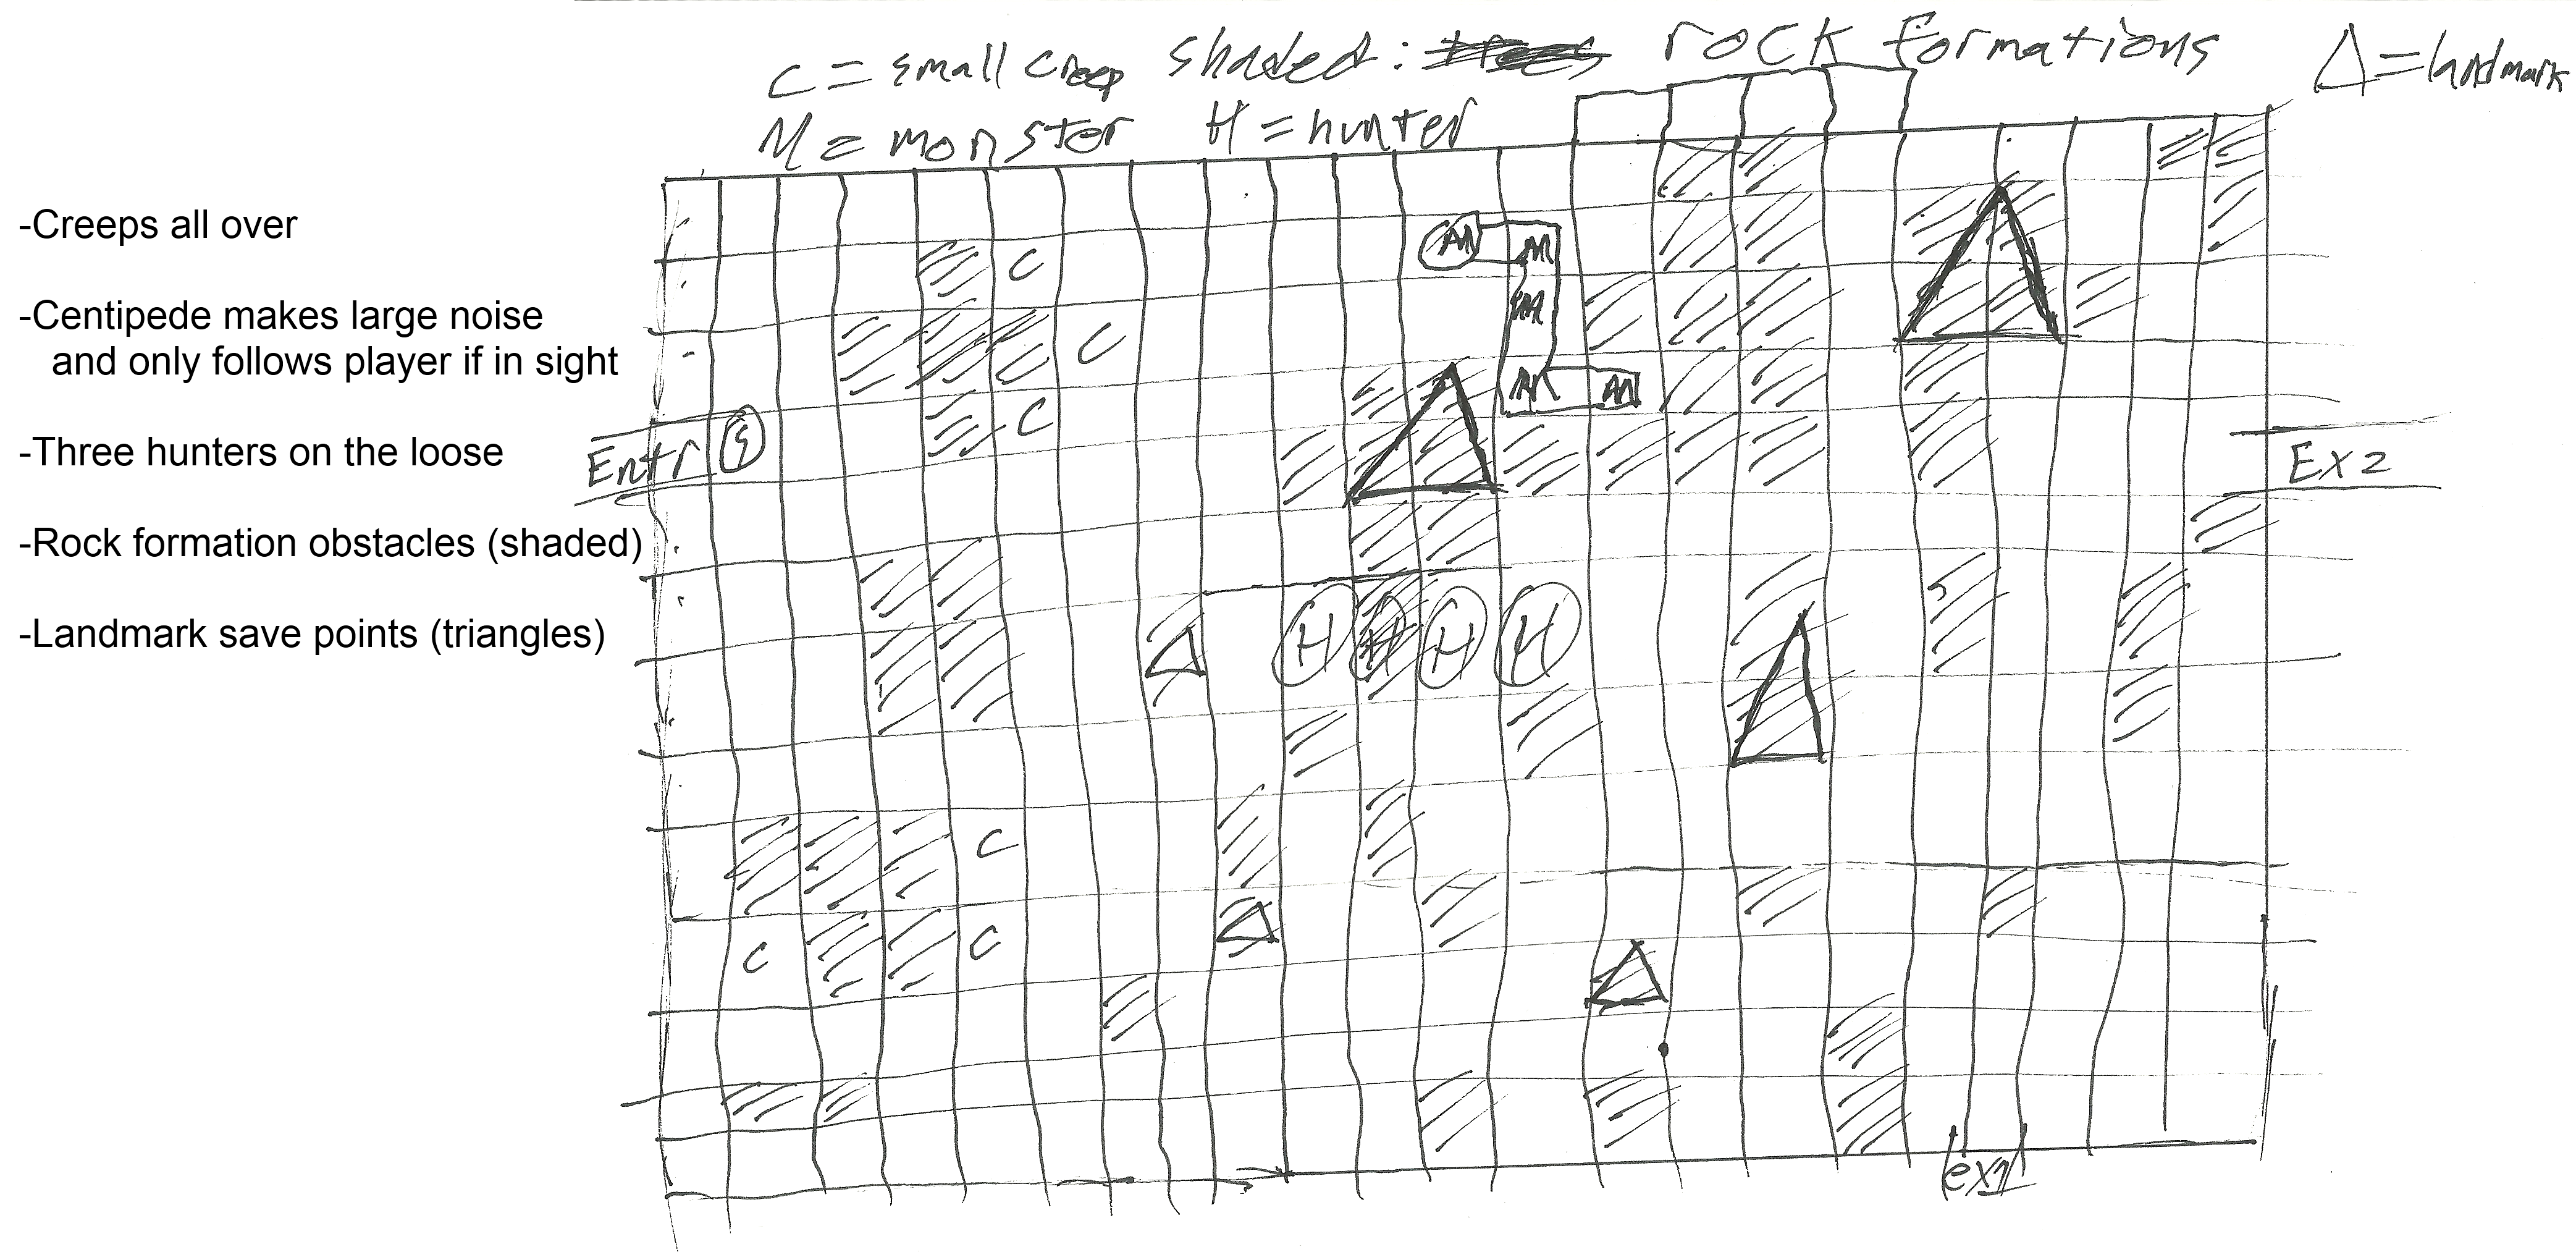 C = small creep shaded: rock formations Δ = landmark
M = monster H = hunter
-Creeps all over
-Centipede makes large noise
and only follows player if in sight
-Three hunters on the loose
-Rock formation obstacles (shaded)
-Landmark save points (triangles)
M M
C
M
C C
M M
C
Entr
Ex 2
H H H H
C
C C
ex1